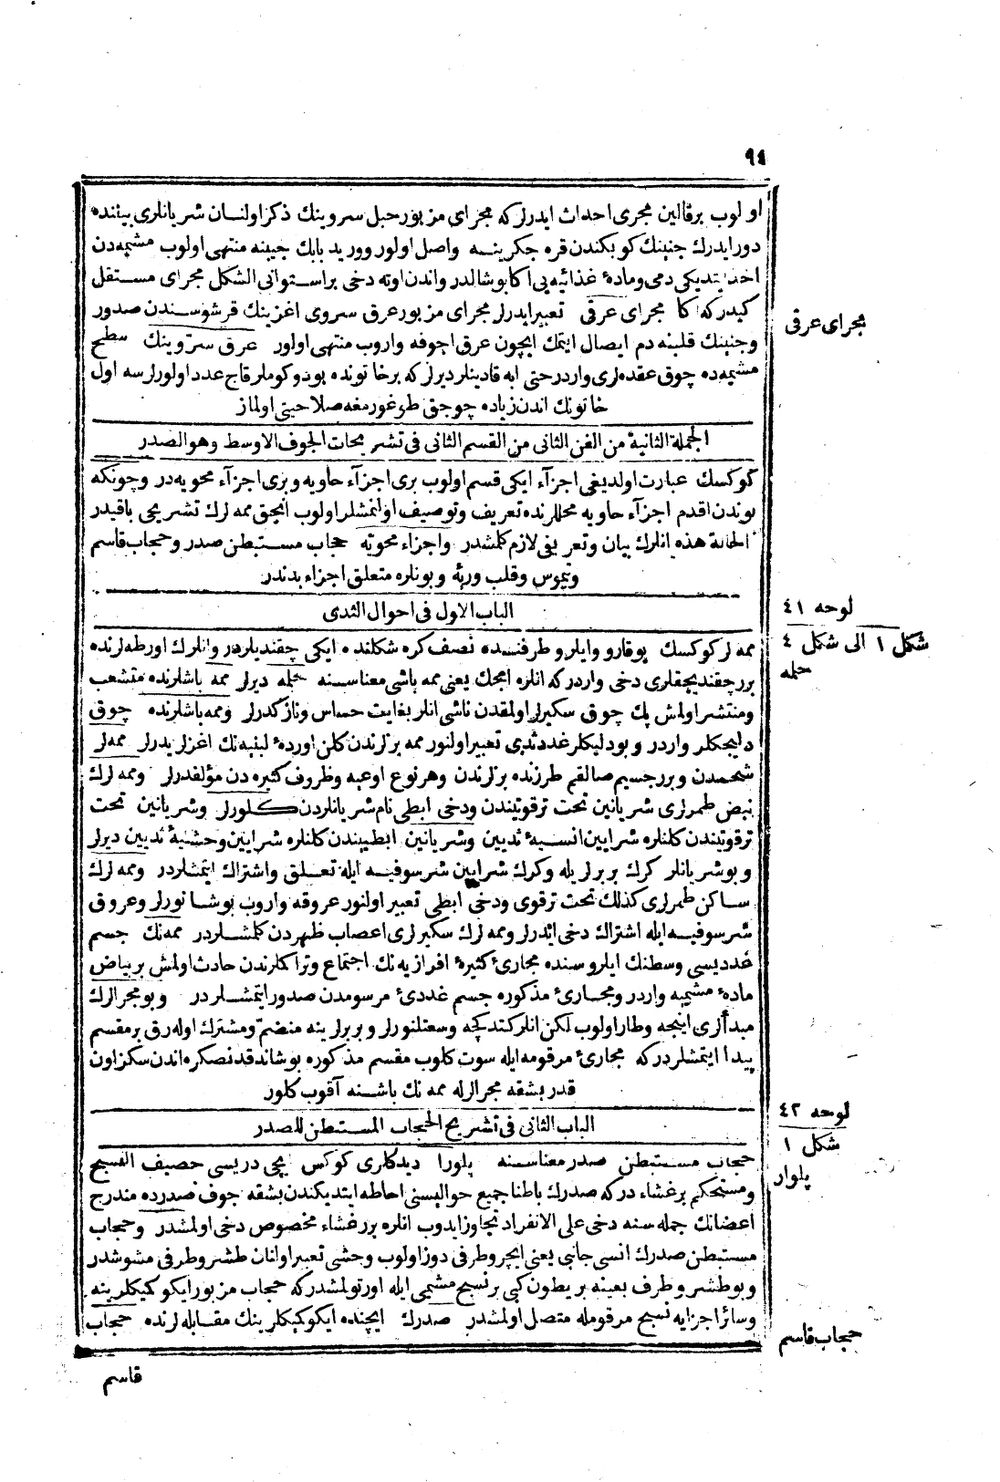 ٩٤
اولوب برقالین مجری احداث ایدرلركه مجرای مزبور حبل سروینك ذكر اولنان شریانلری بیننده
دور ایدرك جنینك كوبكندن قره جكرینه واصل اولور وورید بابك جیبنه منتهی اولوب مشیمه‌دن
اخذ ایتدیكی دمی وماده‌ٔ غذائیه‌یی اكا بوشالدر واندن اوته دخی بر استوانی الشكل مجرای مستقل
كیدركه اكا مجرای عرقی تعبیر ایدرلر مجرای مزبور عرق سروی اغزینك قرشوسندن صدور
وجنینك قلبنه دم ایصال ایتمك ایچون عرق اجوفه واروب منتهی اولور عرق سروینك سطح
مشیمه‌ده چوق عقده‌لری واردر حتی ابه قادینلر دیرلركه بر خاتونده بو دوكوملر قاچ عدد اولورلرسه اول
خاتونك اندن زیاده چوجق طوغورمغه صلاحیتی اولماز
الجملة الثانیة من الفن الثانی من القسم الثانی فی تشریحات الجوف الاوسط وهو الصدر
كوكسك عبارت اولدیغی اجزآء ایكی قسم اولوب بری اجزآء حاویه وبری اجزآء محویه‌در وچونكه
بوندن اقدم اجزآء حاویه محللرنده تعریف وتوصیف اولنمشلر اولوب انجق ممه‌لرك تشریحی باقیدر
الحالة هذه انلرك بیان وتعریفی لازم كلمشدر واجزاء محویه حجاب مستبطن صدر وحجاب قاسم
وتیموس وقلب وریه وبونلره متعلق اجزاء بدندر
الباب الاول فی احوال الثدی
ممه‌لر كوكسك یوقارو وایلرو طرفنده نصف كره شكلنده ایكی چقندیلردر وانلرك اورطه‌لرنده
برر چقندیجقلری دخی واردركه انلره امجك یعنی ممه باشی معناسنه حلمه دیرلر ممه باشلرنده متشعب
ومنتشر اولمش پك چوق سكیرلر اولمقدن ناشی انلر بغایت حساس ونازكدرلر وممه باشلرنده چوق
دلیجكلر واردر وبو دلیكلر غددثدیی تعبیر اولنور ممه بزلرندن كلن اورده‌ٔ لبنیه‌نك اغزلریدرلر ممه‌لر
شحمدن وبرر جسیم صالقم طرزنده بزلرندن وهر نوع اوعیه وظروف كثیره‌دن مؤلفدرلر وممه‌لرك
نبض طمرلری شریانین تحت ترقوتیندن ودخی ابطی نام شریانلردن كلورلر وشریانین تحت
ترقوتیندن كلنلره شرایین انسیه‌ٔ ثدیین وشریانین ابطییندن كلنلره شرایین وحشیه‌ٔ ثدیین دیرلر
وبو شریانلر كرك بربرلریله وكرك شرایین شرسوفیه ایله تعلق واشتراك ایتمشلردر وممه‌لرك
ساكن طمرلری كذلك تحت ترقوی ودخی ابطی تعبیر اولنور عروقه واروب بوشانورلر وعروق
شرسوفیه ایله اشتراك دخی ایدرلر وممه‌لرك سكیرلری اعصاب ظهردن كلمشلردر ممه‌نك جسم
غددیسی وسطنك ایلروسنده مجاریٔ كثیره‌ٔ افرازیه‌نك اجتماع وتراكملرندن حادث اولمش بر بیاض
ماده‌ٔ مشیمیه واردر ومجاریٔ مذكوره جسم غددیٔ مرسومدن صدور ایتمشلردر وبو مجرالرك
مبدألری اینجه وطار اولوب لكن انلر كیتدكجه وسعتلنورلر وبربرلرینه منضم ومشترك اوله‌رق بر مقسم
پیدا ایتمشلردركه مجاریٔ مرقومه ایله سوت كلوب مقسم مذكوره بوشاندقدنصكره اندن سكز اون
قدر بشقه مجرالرله ممه‌نك باشنه آقوب كلور
الباب الثانی فی تشریح الحجاب المستبطن للصدر
حجاب مستبطن صدر معناسنه پلورا دیدكلری كوكس ایچی دریسی حصیف النسیج
ومستحكم بر غشاء دركه صدرك باطنا جمیع حوالیسنی احاطه ایتدیكندن بشقه جوف صدرده مندرج
اعضانك جمله‌سنه دخی علی الانفراد تجاوز ایدوب انلره برر غشاء مخصوص دخی اولمشدر وحجاب
مستبطن صدرك انسی جانبی یعنی ایچرو طرفی دوز اولوب وحشی تعبیر اولنان طشرو طرفی مشوشدر
وبو طشرو طرف بعینه بریطون كبی بر نسیج مشیمی ایله اورتولمشدركه حجاب مزبور ایكو كمیكلرینه
وسائر اجزایه نسیج مرقومله متصل اولمشدر صدرك ایچنده ایكو كمیكلرینك مقابله‌لرنده حجاب
قاسم
مجرای عرقی
لوحه ٤١
شكل ١ الی شكل ٤
حلمه
لوحه ٤٢
شكل ١
پلوار
حجاب قاسم